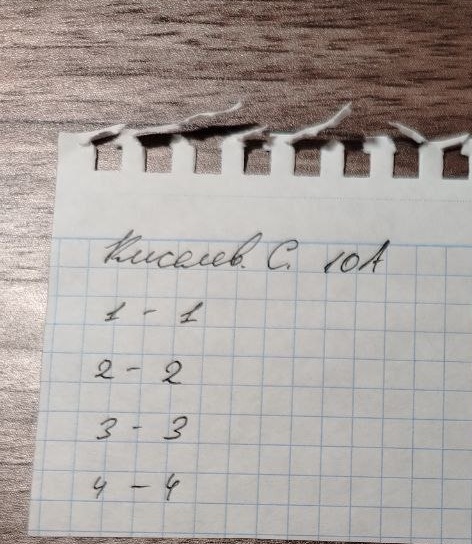 Киселев. С. 10А
1 - 1
2 - 2
3 - 3
4 - 4